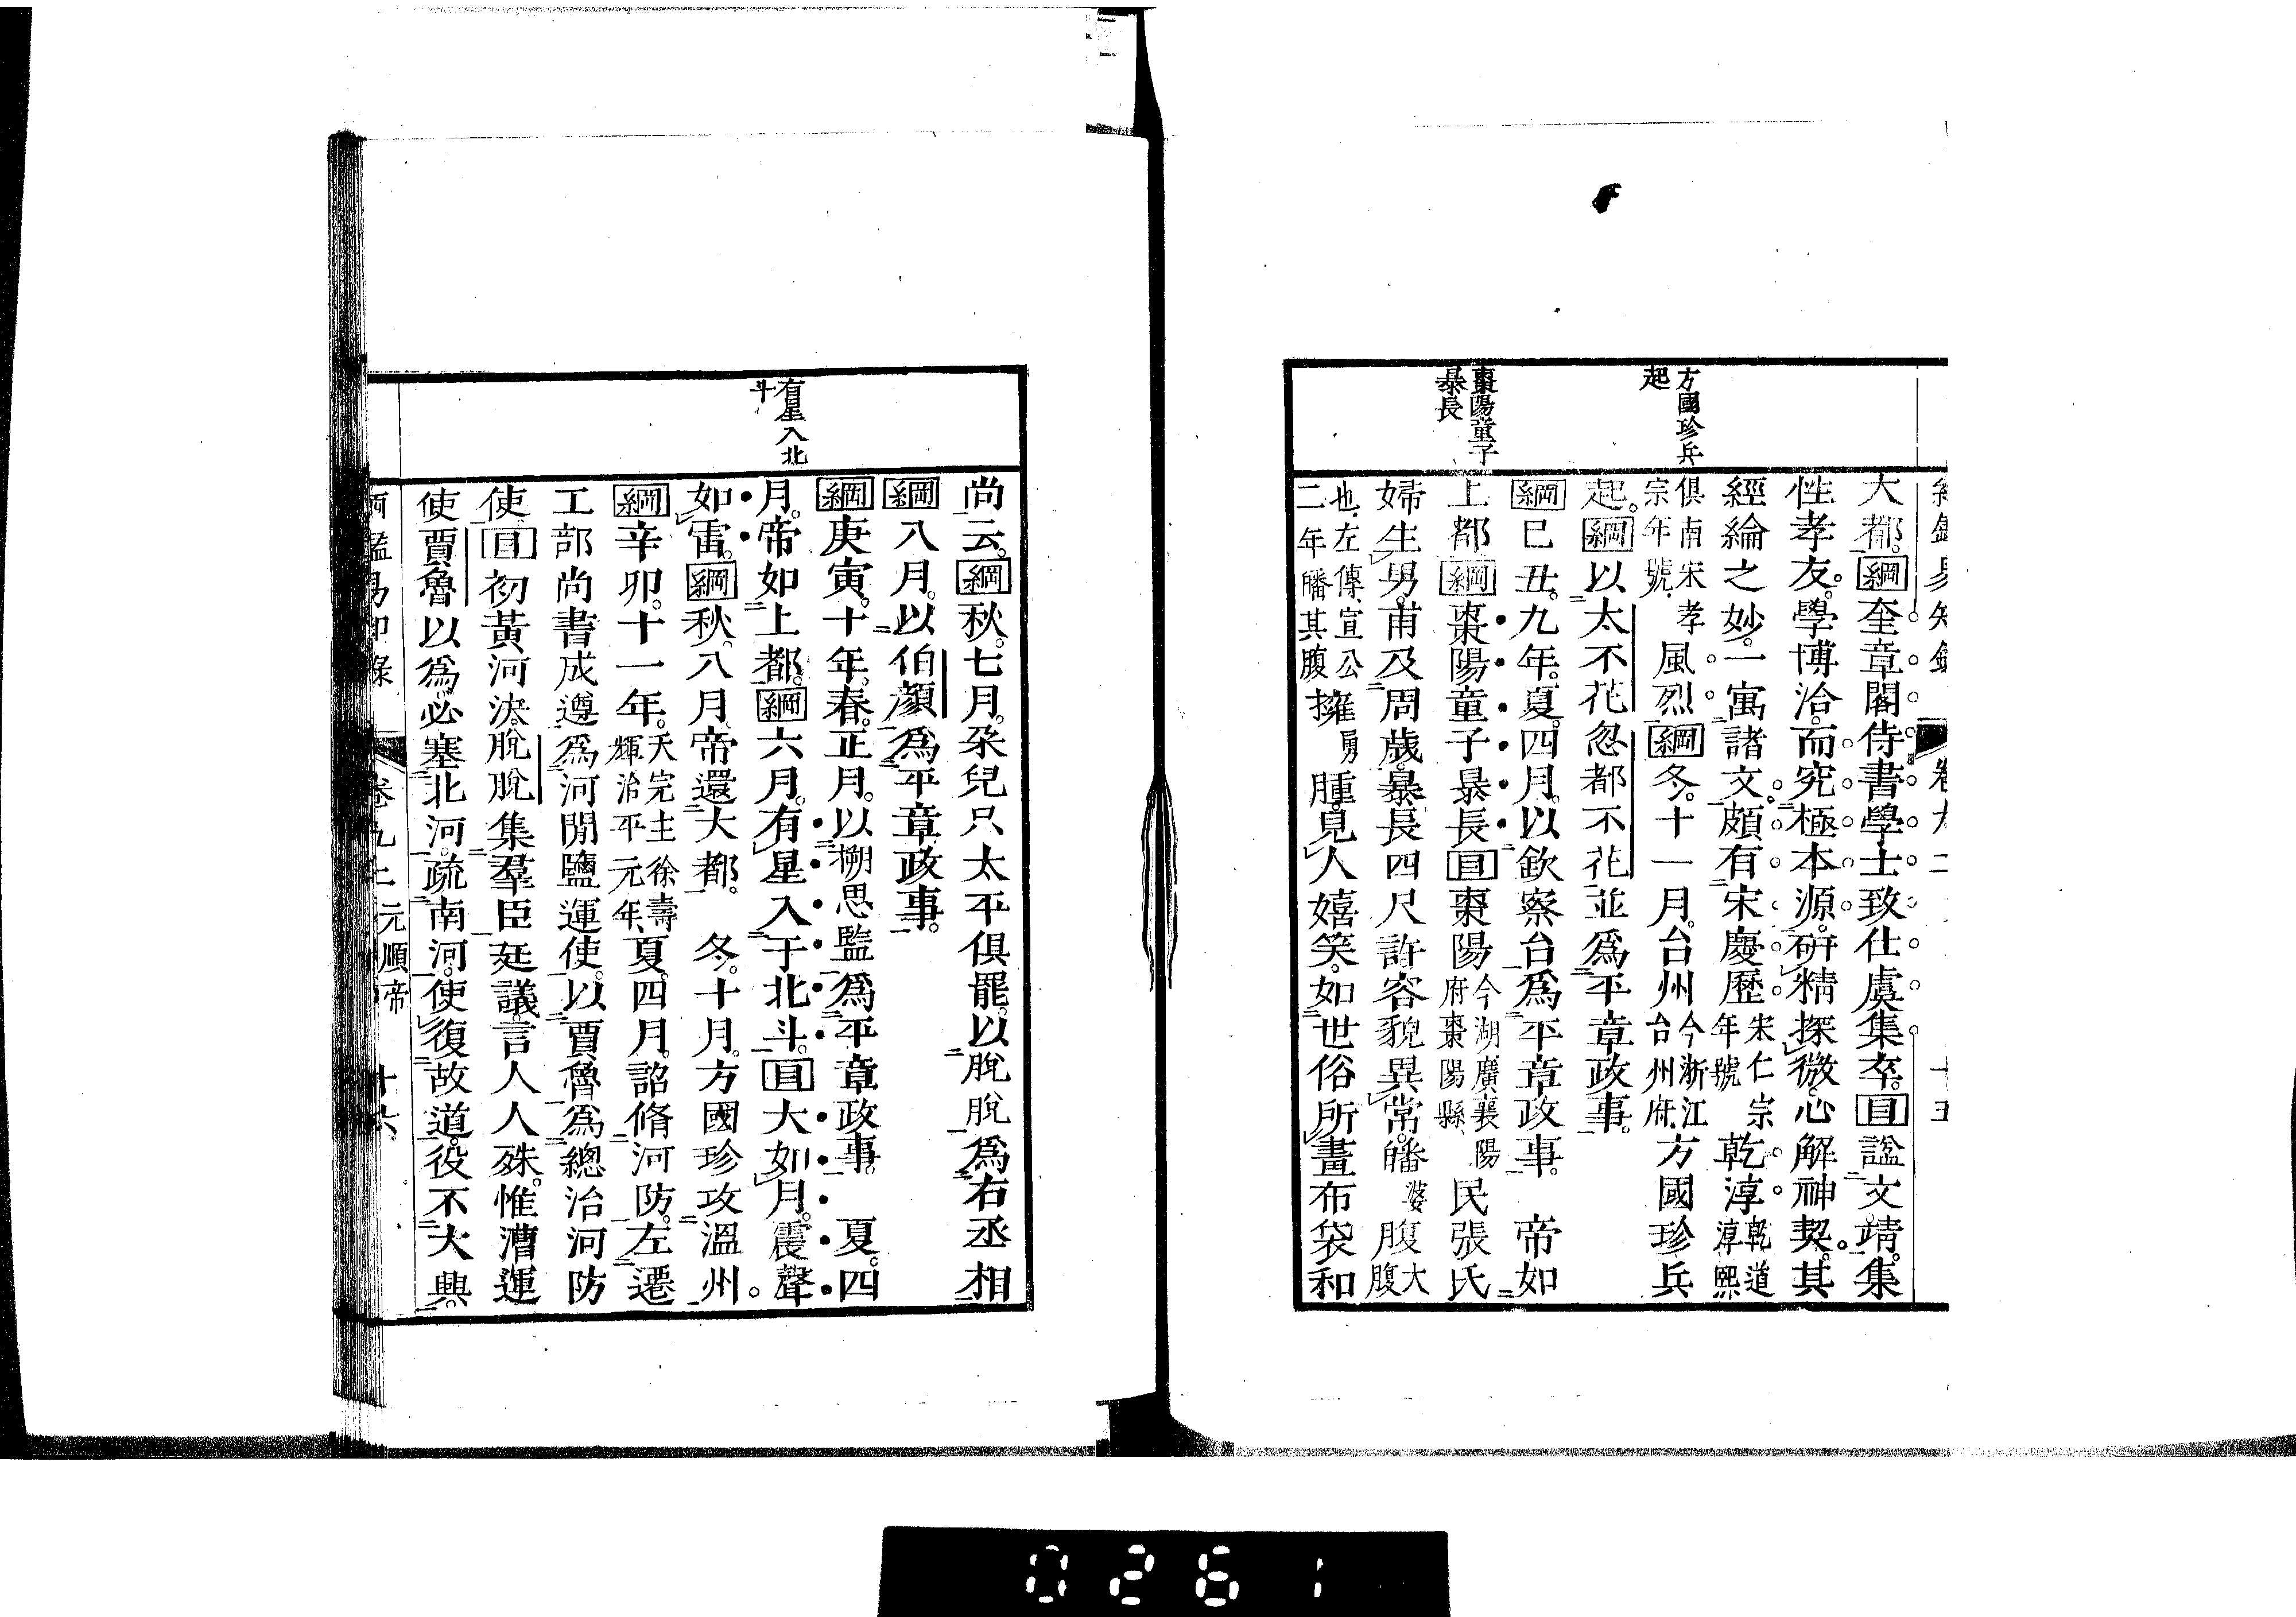 方國珍兵
起
棗陽童子
暴長
大都。綱奎章閣侍書學士致仕虞集卒。目諡文靖。集
性孝友。學博洽。而究極本源。研精探微。心解神契。其
經綸之妙。一寓諸文。頗有宋慶歷宋仁宗年號乾淳乾道淳熙
俱南宋孝宗年號。風烈。綱冬。十一月。台州今浙江台州府。方國珍兵
起。綱以太不花忽都不花並爲平章政事。
綱巳丑。九年。夏。四月。以欽察台爲平章政事。 帝如
上都綱棗陽童子暴長目棗陽今湖廣襄陽府棗陽縣民張氏
婦生男。甫及周歲。暴長四尺許。容貌異常。皤婆腹大腹
也。左傳宣公二年皤其腹擁勇腫。見人嬉笑。如世俗所畫布袋和
有星入北
斗
尚云。綱秋。七月。朶兒只太平俱罷。以脫脫爲右丞相
綱八月。以伯顏爲平章政事。
綱庚寅。十年。春。正月。以搠思監爲平章政事。 夏。四
月。帝如上都。綱六月。有星入于北斗。目大如月。震聲
如雷。綱秋。八月。帝還大都。 冬。十月。方國珍攻溫州。
綱辛卯。十一年。天完主徐壽輝治平元年。夏。四月。詔脩河防。左遷
工部尚書成遵爲河閒鹽運使。以賈魯爲總治河防
使目初黃河決。脫脫集羣臣廷議。言人人殊。惟漕運
使賈魯以爲。必塞北河。疏南河。使復故道。役不大興。
卷九十二 元順帝 十六